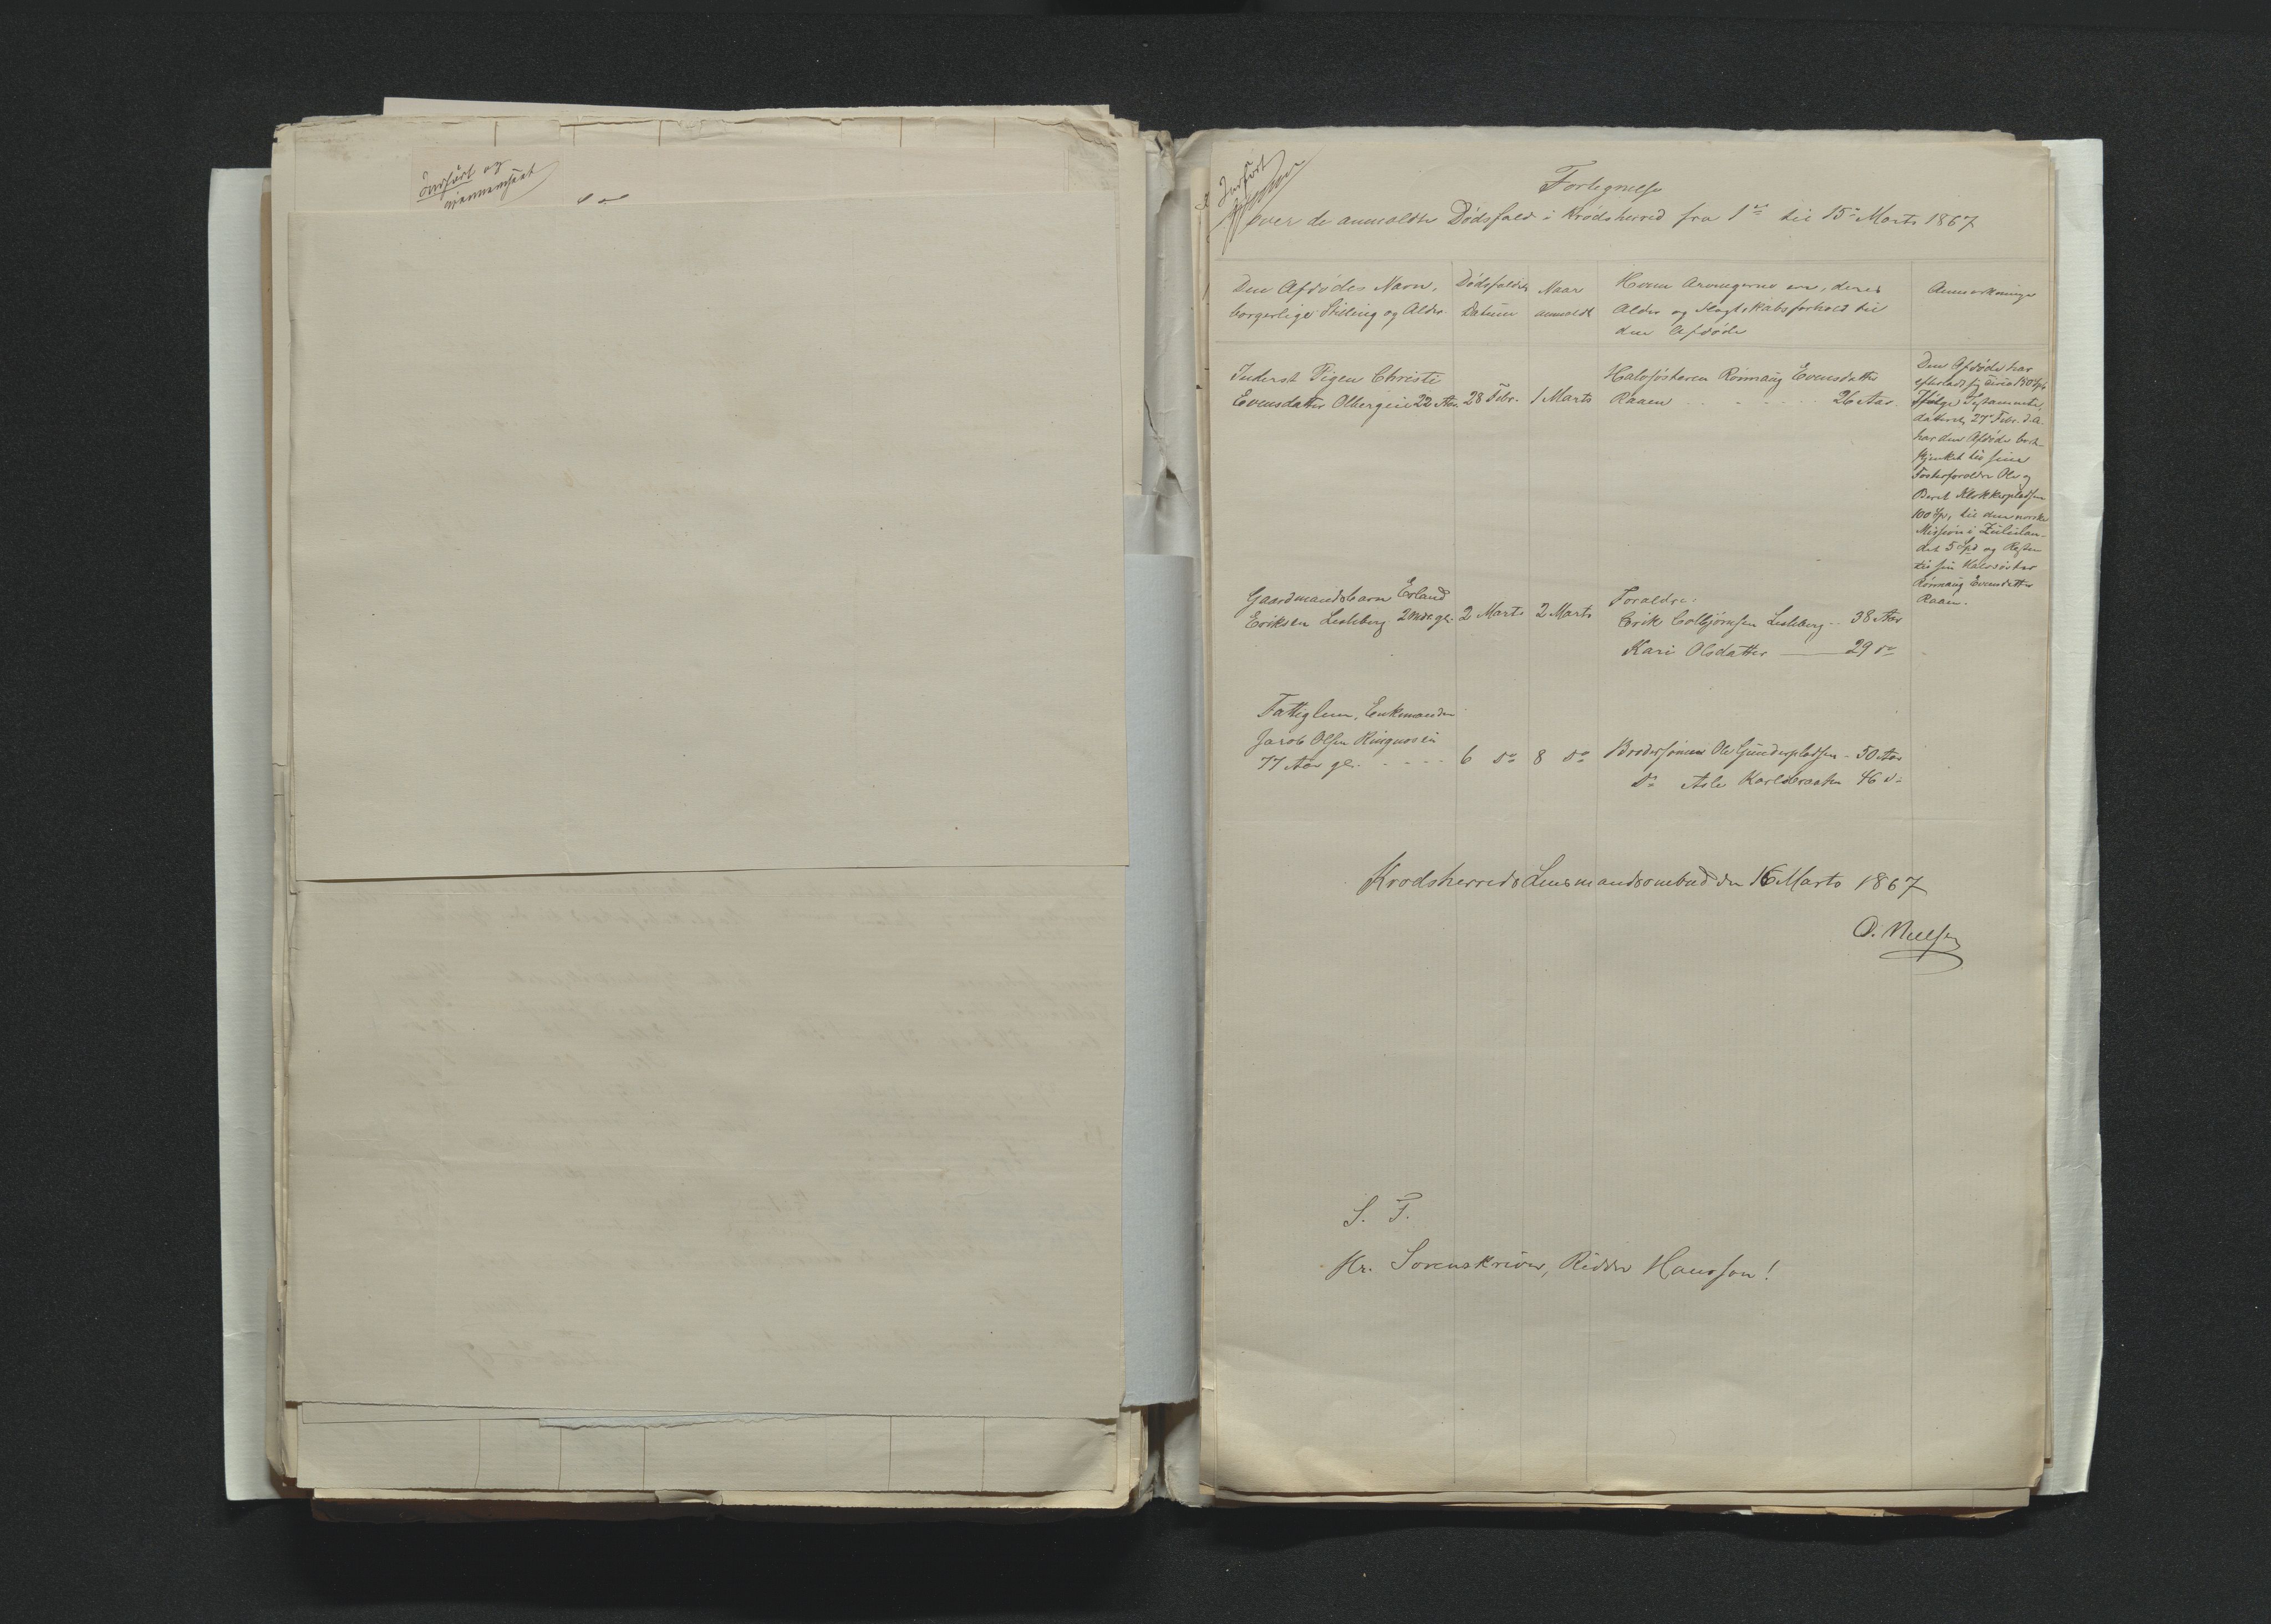 Indført og
gjennemgaaet
Indført
Fortegnelse
over de anmeldte Dødsfald i Krødsherred fra 1ste til 15de Marts 1867
Den Afdødes Navn,
borgerlige Stilling og Alder.
Dødsfaldets
Datum
Naar
anmeldt
Hvem Arvingerne ere, deres
Alder og Slægtskabsforhold til
den Afdøde
Anmerkninger
Inderst Pigen Christi
Evensdatter Olbergeie 22 Aar.
28 Febr.
1 Marts
Halvsøsteren Rønnaug Evensdatter
Raaen - - - - 26 Aar.
Den Afdøde har
efterladt sig circa 150 Spd
Ifølge Testamente,
dateret 27 Febr. d. A.
har den Afdøde bort-
skjenket til sine
Fosterforældre Ole og
Berit Klokkerpladsen
100 Spd, til den norske
Mission i Zululan-
det 5 Spd og Resten
til sin Halvsøster
Rønnaug Evensdatter
Raaen.
Gaardmandsbarn Erland
Eriksen Lesteberg 2 Mdr gl.
2 Marts
2 Marts
Forældre:
Erik Colbjørnsen Lesteberg - - 38 Aar
Kari Olsdatter — 29 do
Fattiglem, Enkemanden
Jacob Olsen Ringneseie
77 Aar gl. - - - -
6 do
8 do
Brodersønnen Ole Gunderpladsen - 50 Aar
do Asle Karlsbraaten 46 do
Krødsherreds Lensmandsombud den 16 Marts 1867
O. Nielsen
S. T.
Hr. Sorenskriver, Ridder Hansson!